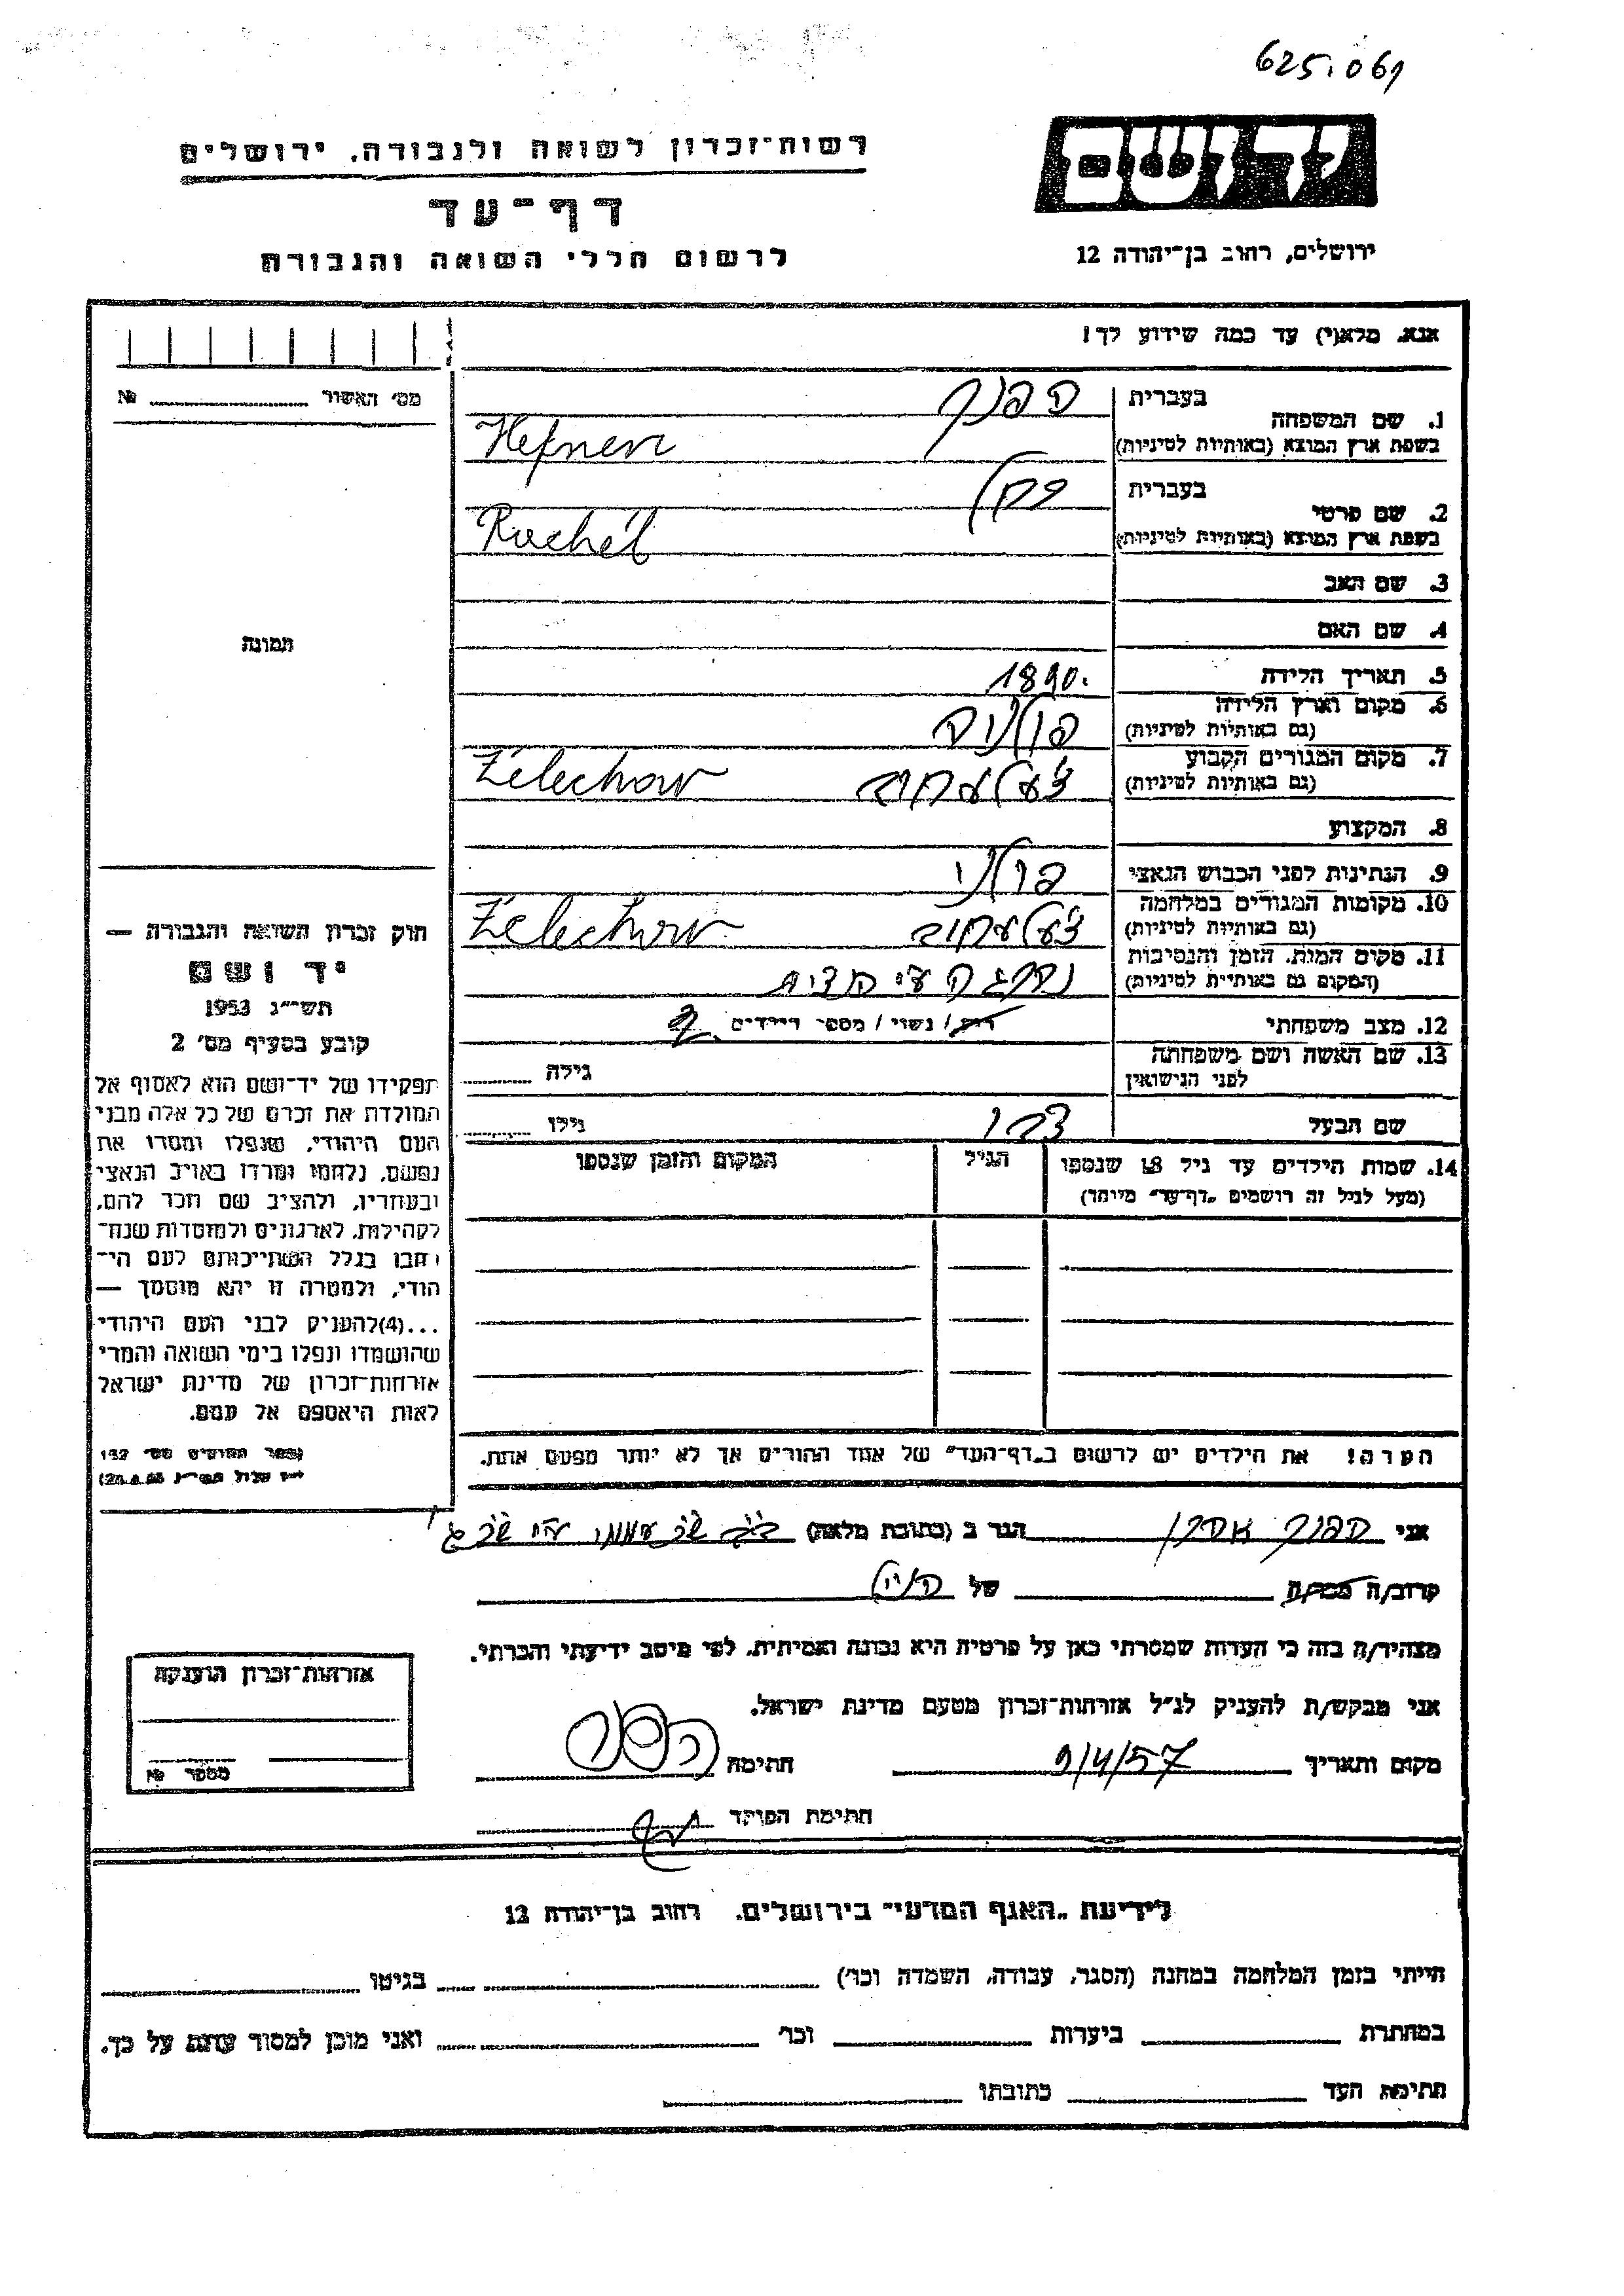 625.061
רשות־זכרון לשואה ולגבורה, ירושלים
דף־עד
לרשום חללי השואה והגבורה
יד ושם
ירושלים, רחוב בן־יהודה 12
אנא, מלא(י) עד כמה שידוע לך!
מס׳ האשור № 
תמונה
1. שם המשפחה
בעברית הפנר
בשפת ארץ המוצא (באותיות לטיניות) Hefner
2. שם פרטי
בעברית רחל
בשפת ארץ המוצא (באותיות לטיניות) Ruchel
3. שם האב
4. שם האם
5. תאריך הלידה 1890.
6. מקום וארץ הלידה פולניה
(גם באותיות לטיניות)
7. מקום המגורים הקבוע Żelechow
(גם באותיות לטיניות)
8. המקצוע
9. הנתינות לפני הכבוש הנאצי פולני
10. מקומות המגורים במלחמה Żelechow
(גם באותיות לטיניות)
11. מקום המות, הזמן והנסיבות
(המקום גם באותיות לטיניות)
12. מצב משפחתי רוק / נשוי / מספר הילדים
13. שם האשה ושם משפחתה
לפני הנישואין גילה
שם הבעל גילו
14. שמות הילדים עד גיל 18 שנספו הגיל המקום והזמן שנספו
(מעל לגיל זה רושמים „דף־עד” מיוחד)
הערה! את הילדים יש לרשום ב„דף־העד” של אחד ההורים אך לא יותר מפעם אחת.
חוק זכרון השואה והגבורה —
יד ושם
תשי״ג 1953
קובע בסעיף מס׳ 2
תפקידו של יד־ושם הוא לאסוף אל
המולדת את זכרם של כל אלה מבני
העם היהודי, שנפלו ומסרו את
נפשם, נלחמו ומרדו באויב הנאצי
ובעוזריו, ולהציב שם וזכר להם,
לקהילות, לארגונים ולמוסדות שנח־
רבו בגלל השתייכותם לעם הי־
הודי, ולמטרה זו יהא מוסמך —
...(4)להעניק לבני העם היהודי
שהושמדו ונפלו בימי השואה והמרי
אזרחות־זכרון של מדינת ישראל
לאות היאספם אל עמם.
(ספר החוקים מס׳ 132
אני הפנר הגר ב (כתובת מלאה)
קרוב/ה מכר/ה של הנ״ל
מצהיר/ה בזה כי העדות שמסרתי כאן על פרטיה היא נכונה ואמיתית, לפי מיטב ידיעתי והכרתי.
אני מבקש/ת להעניק לנ״ל אזרחות־זכרון מטעם מדינת ישראל.
מקום ותאריך 9/4/57 חתימה
חתימת הפוקד
אזרחות־זכרון הוענקה
מספר №
לידיעת „האגף המדעי” בירושלים, רחוב בן־יהודה 12
הייתי בזמן המלחמה במחנה (הסגר, עבודה, השמדה וכו׳) בגיטו
במחתרת ביערות וכו׳ ואני מוכן למסור עדות על כך.
חתימת העד כתובתו